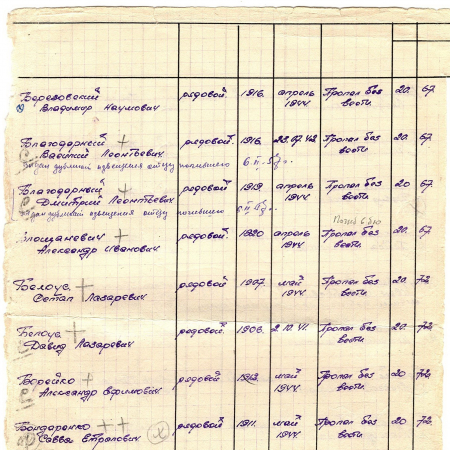 Березовский рядовой. 1916. апрель Пропал без 20. 67.
Владимир Наумович 1944. вести
Благодарный рядовой. 1916. 22.07.42. Пропал без 20. 67
Василий Леонтьевич вести
дубликат извещения отцу погибшего 6 II
Благодарный рядовой 1919. апрель Пропал без 20 67
Дмитрий Леонтьевич 1944. вести
дубликат извещения отцу погибшего
рядовой. 1920 апрель Пропал без 20. 67
Александр Иванович 1944 вести
Белоус рядовой 1907. май Пропал без 20. 72.
Степан Лазаревич 1944. вести
Белоус рядовой. 1906. 2.10.41. Пропал без 20. 72.
Давид Лазаревич вести
Борейко рядовой 1913. май Пропал без 20 72.
Александр Ефимович 1944. вести
Бондаренко рядовой 1911. май Пропал без 20 72.
Савва 1944. вести